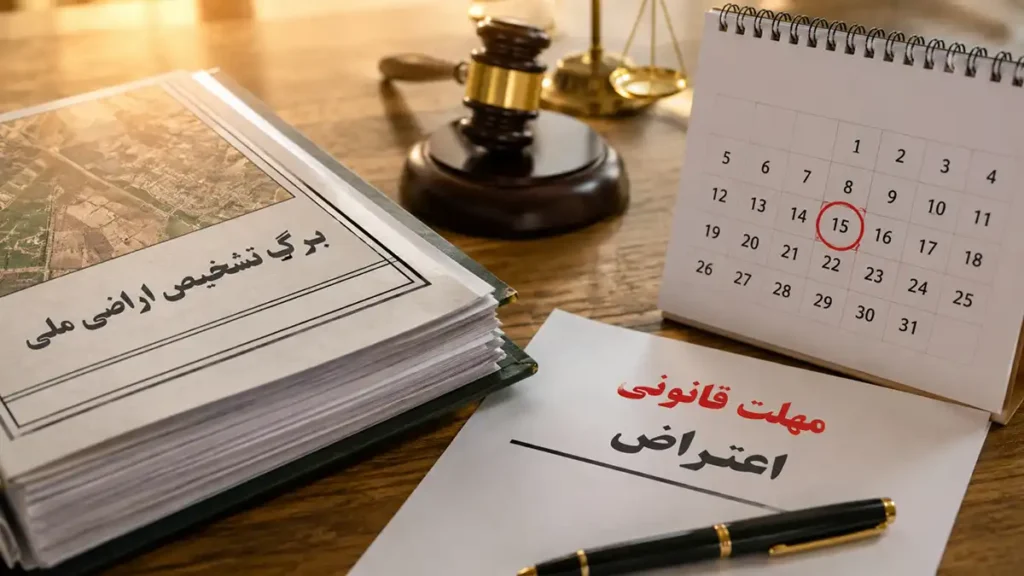 برگ تشخیص اراضی ملی
مهلت قانونی
اعتراض
1 2 3 4
5 6 7 8 9 10 11
12 13 14 15 16 17 18
19 20 21 22 23 24 25
26 27 28 29 30 31